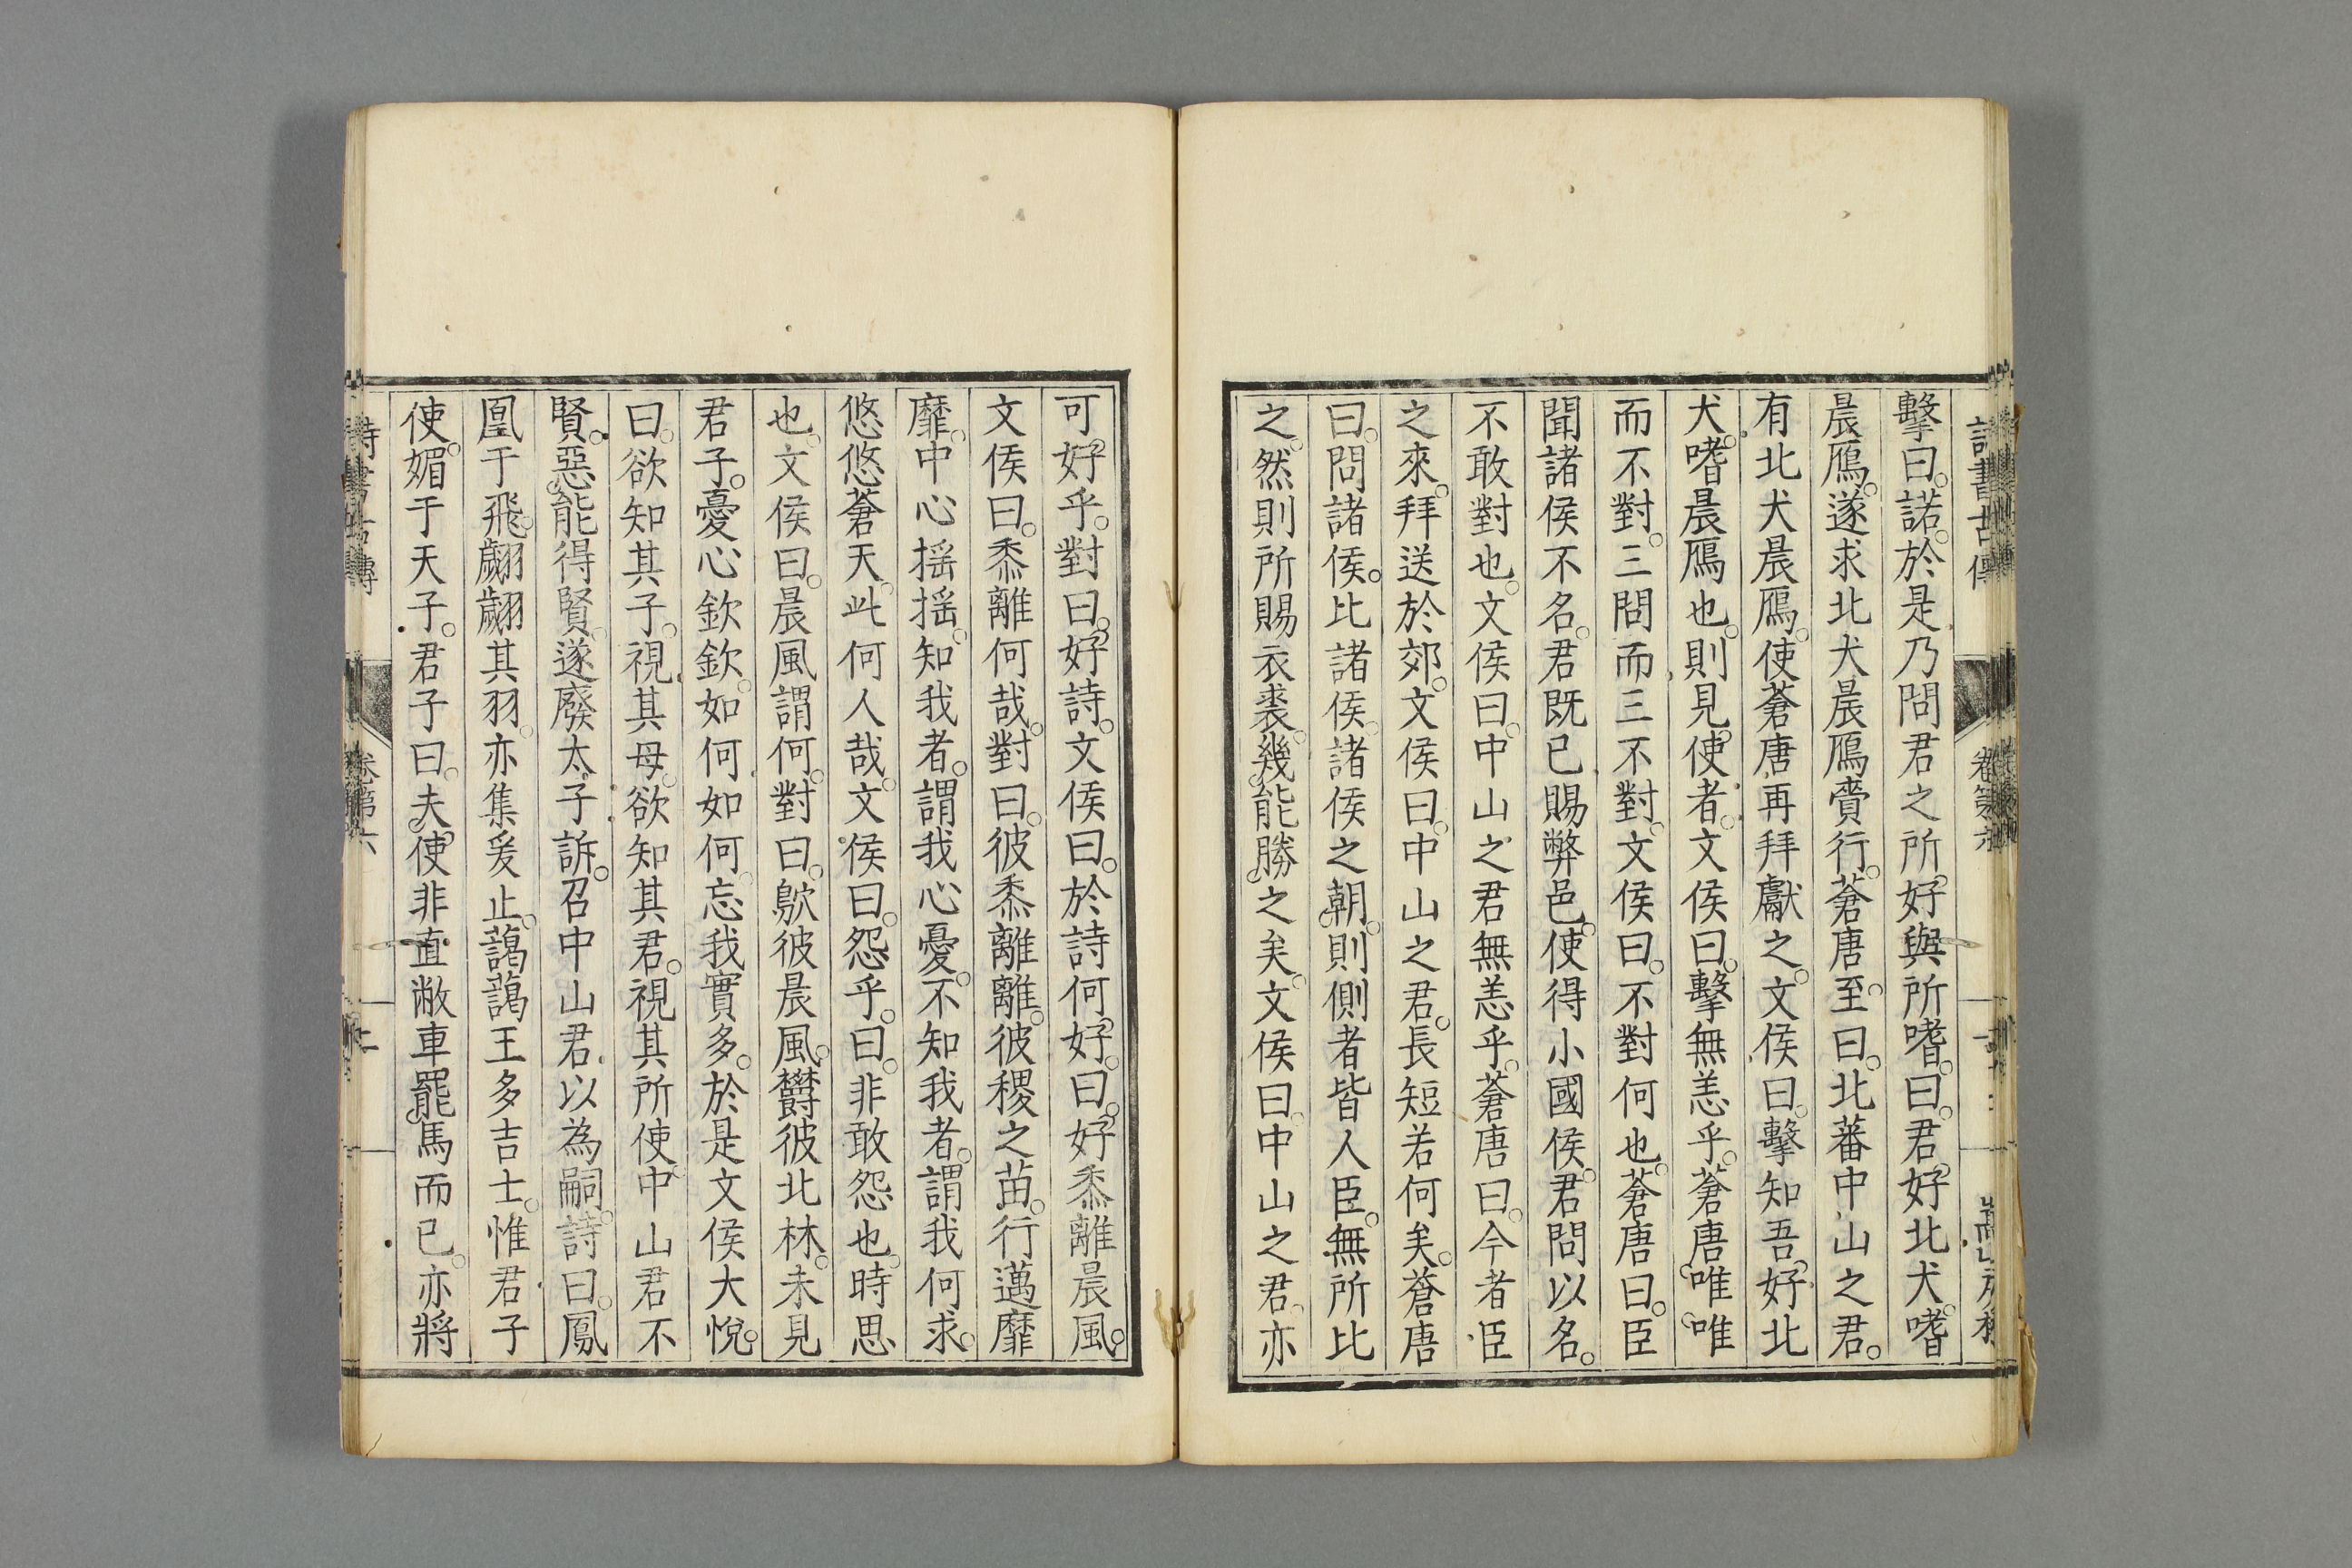 擊曰。諾。於是乃問君之所好與所嗜。曰。君好北犬。嗜
晨鴈。遂求北犬晨鴈賷行。蒼唐至。曰。北蕃中山之君。
有北犬晨鴈。使蒼唐再拜獻之。文侯曰。擊知吾好北
犬。嗜晨鴈也。則見使者。文侯曰。擊無恙乎。蒼唐唯唯
而不對。三問而三不對。文侯曰。不對何也。蒼唐曰。臣
聞諸侯不名。君既已賜弊邑。使得小國侯。君問以名。
不敢對也。文侯曰。中山之君無恙乎。蒼唐曰。今者臣
之來。拜送於郊。文侯曰。中山之君。長短若何矣。蒼唐
曰。問諸侯。比諸侯。諸侯之朝。則側者皆人臣。無所比
之。然則所賜衣裘。幾能勝之矣。文侯曰。中山之君。亦
可好乎。對曰。好詩。文侯曰。於詩何好。曰。好黍離晨風。
文侯曰。黍離何哉。對曰。彼黍離離。彼稷之苗。行邁靡
靡。中心搖搖。知我者。謂我心憂。不知我者。謂我何求。
悠悠蒼天。此何人哉。文侯曰。怨乎。曰。非敢怨也。時思
也。文侯曰。晨風謂何。對曰。鴥彼晨風。欝彼北林。未見
君子。憂心欽欽。如何如何。忘我實多。於是文侯大悅。
曰。欲知其子。視其母。欲知其君。視其所使。中山君不
賢。惡能得賢。遂廢太子訴。召中山君。以為嗣。詩曰。鳳
凰于飛。翽翽其羽。亦集爰止。藹藹王多吉士。惟君子
使。媚于天子。君子曰。夫使非直敝車罷馬而已。亦將
詩書古傳
卷第六